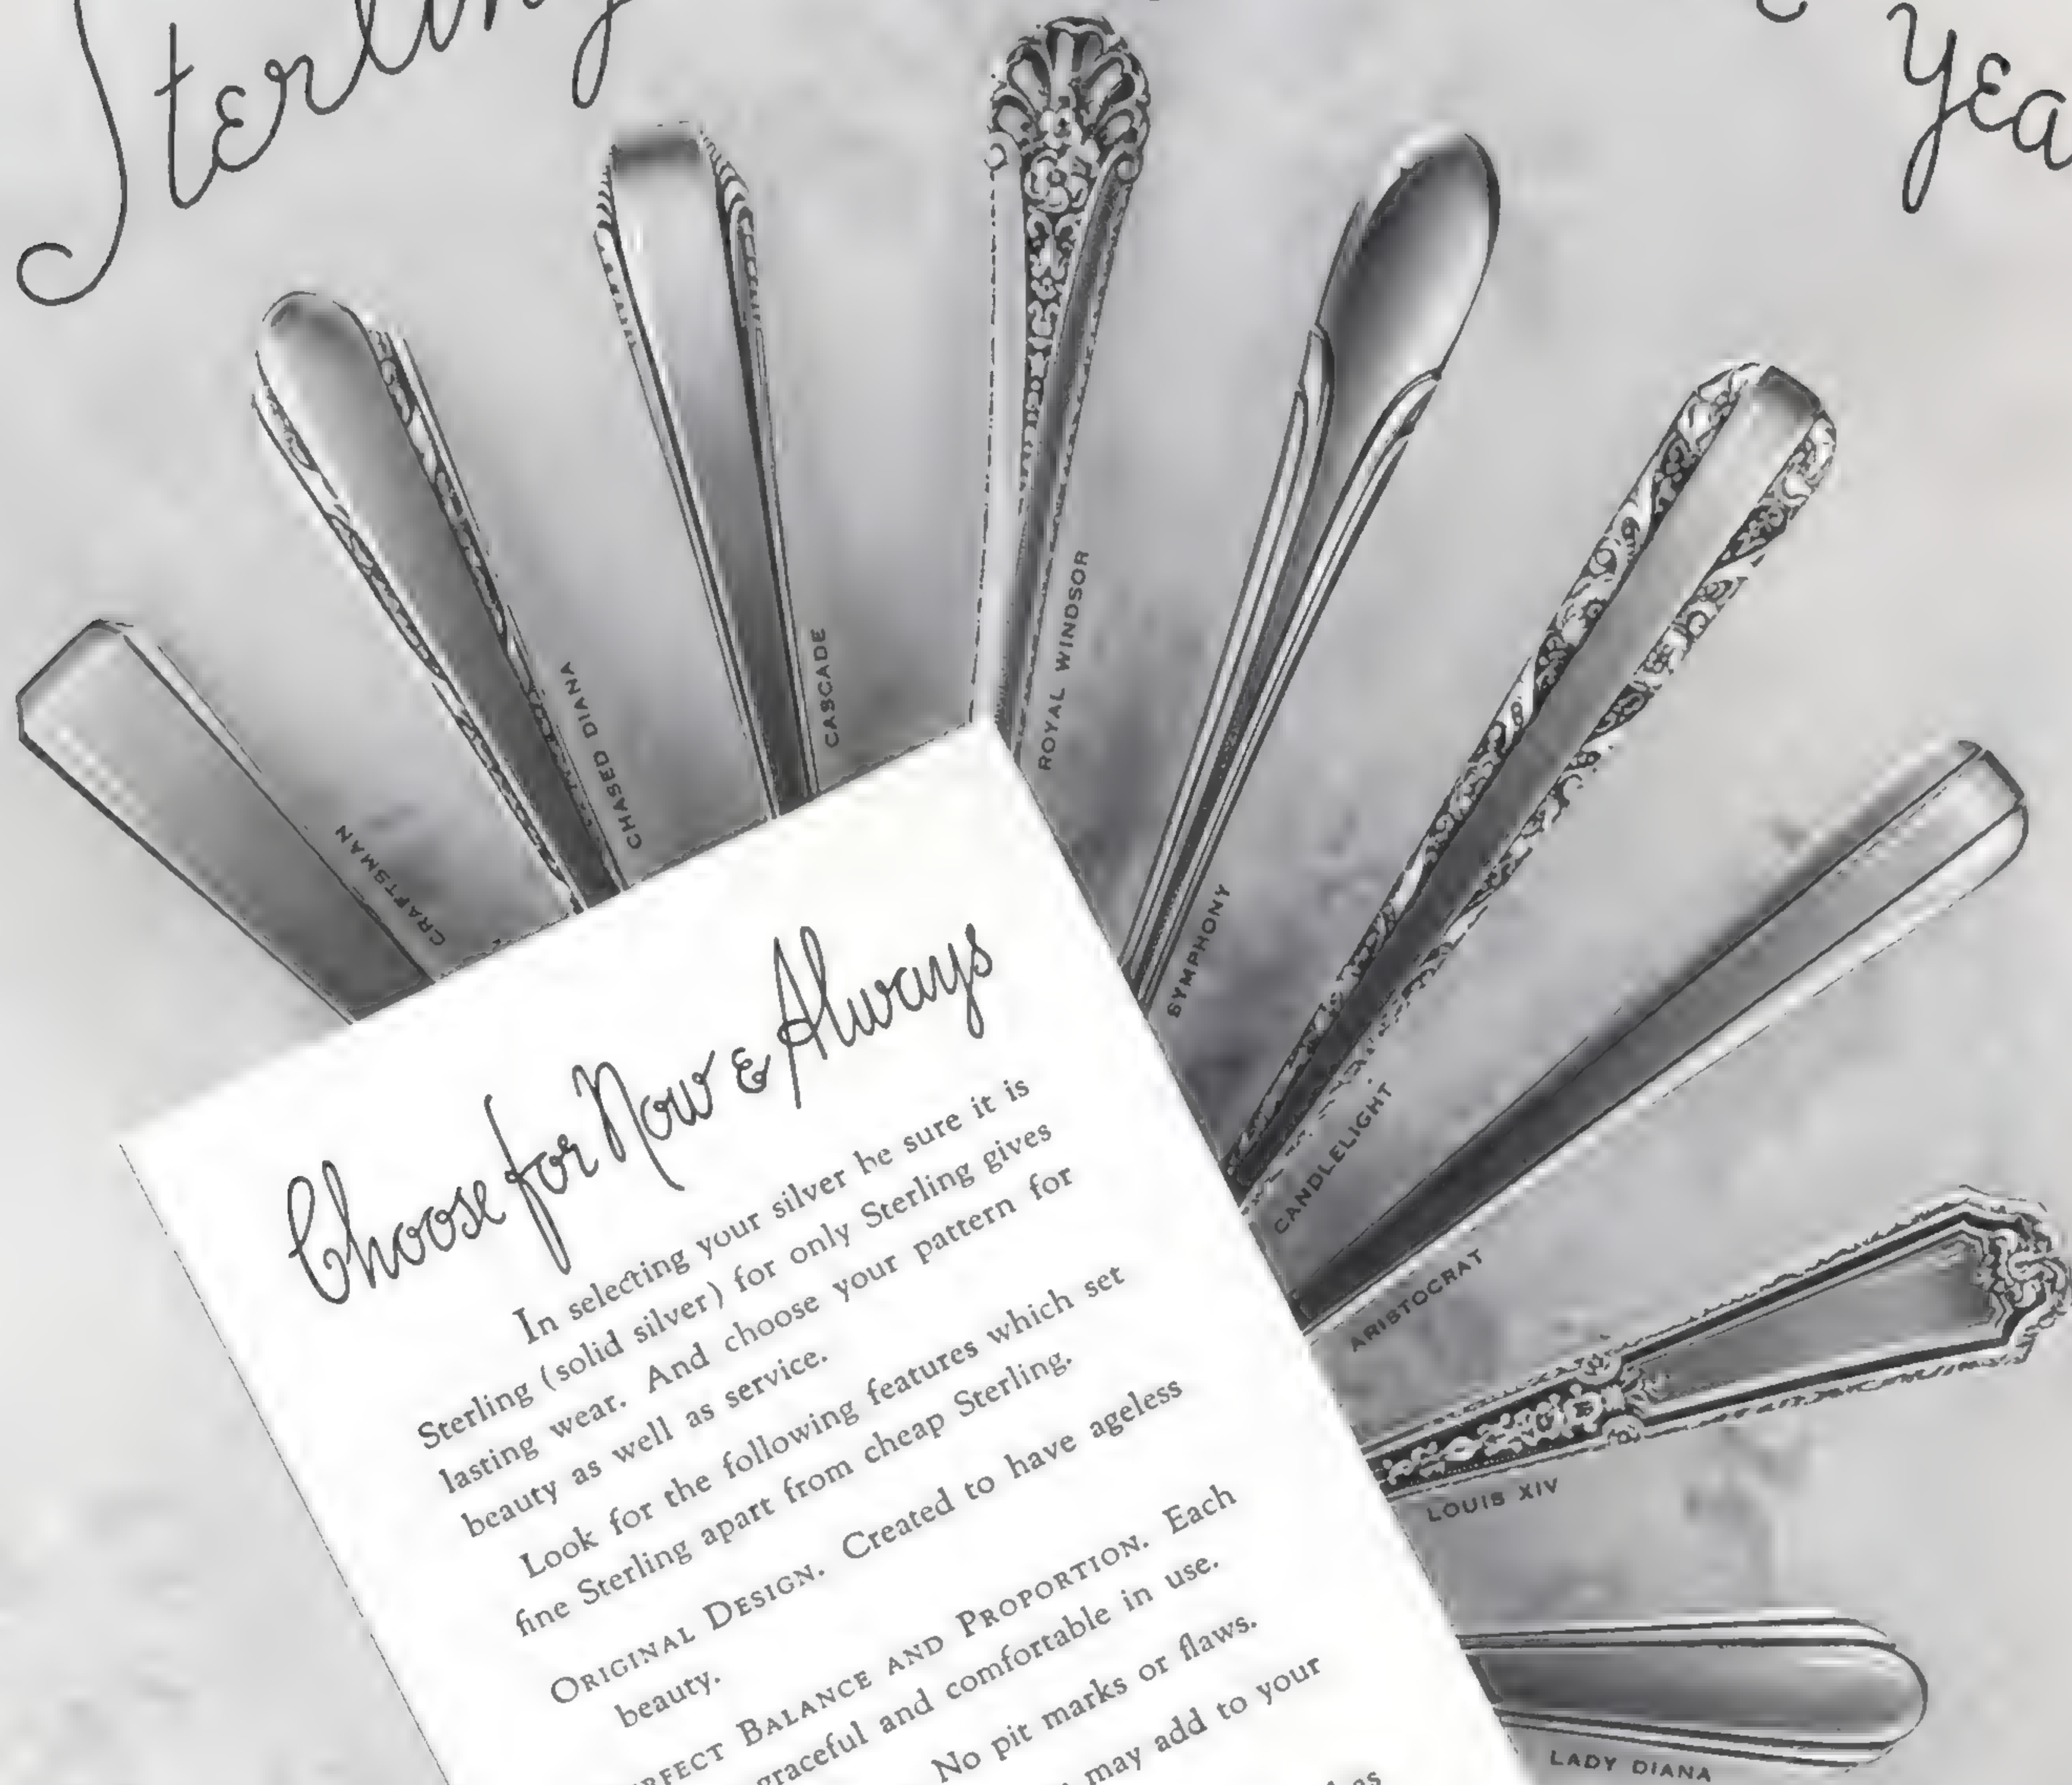 Sterling
CRAFTSMAN
CHASED DIANA
CASCADE
ROYAL WINDSOR
SYMPHONY
CANDLELIGHT
ARISTOCRAT
LOUIS XIV
LADY DIANA
Choose for Now & Always
In selecting your silver be sure it is
Sterling (solid silver) for only Sterling gives
lasting wear. And choose your pattern for
beauty as well as service.
Look for the following features which set
fine Sterling apart from cheap Sterling.
ORIGINAL DESIGN. Created to have ageless
beauty.
BALANCE AND PROPORTION. Each
graceful and comfortable in use.
No pit marks or flaws.
may add to your